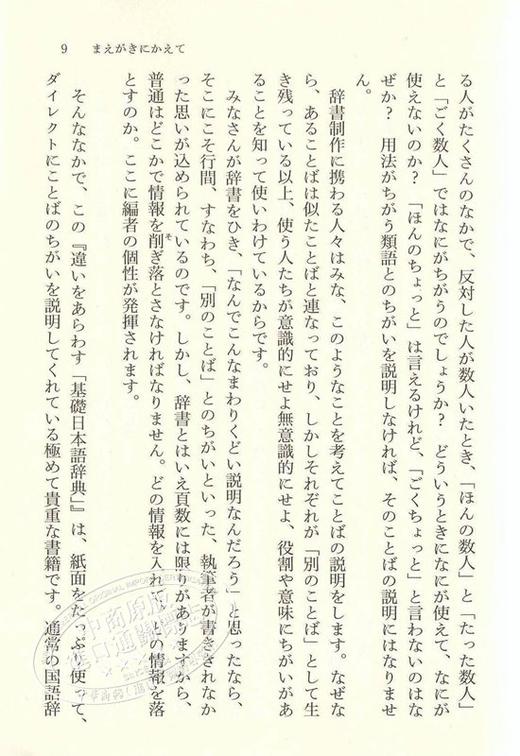 9　まえがきにかえて
る人がたくさんのなかで、反対した人が数人いたとき、「ほんの数人」と「たった数人」
と「ごく数人」ではなにがちがうのでしょうか？　どういうときになにが使えて、なにが
使えないのか？　「ほんのちょっと」は言えるけれど、「ごくちょっと」と言わないのはな
ぜか？　用法がちがう類語とのちがいを説明しなければ、そのことばの説明にはなりませ
ん。
辞書制作に携わる人々はみな、このようなことを考えてことばの説明をします。なぜな
ら、あることばは似たことばと連なっており、しかしそれぞれが「別のことば」として生
き残っている以上、使う人たちが意識的にせよ無意識的にせよ、役割や意味にちがいがあ
ることを知って使いわけているからです。
みなさんが辞書をひき、「なんでこんなまわりくどい説明なんだろう」と思ったなら、
そこにこそ行間、すなわち、「別のことば」とのちがいといった、執筆者が書ききれなか
った思いが込められているのです。しかし、辞書とはいえ頁数には限りがありますから、
普通はどこかで情報を削ぎ落とさなければなりません。どの情報を入れ、どの情報を落
とすのか。ここに編者の個性が発揮されます。
そんななかで、この『違いをあらわす「基礎日本語辞典」』は、紙面をたっぷり使って、
ダイレクトにことばのちがいを説明してくれている極めて貴重な書籍です。通常の国語辞